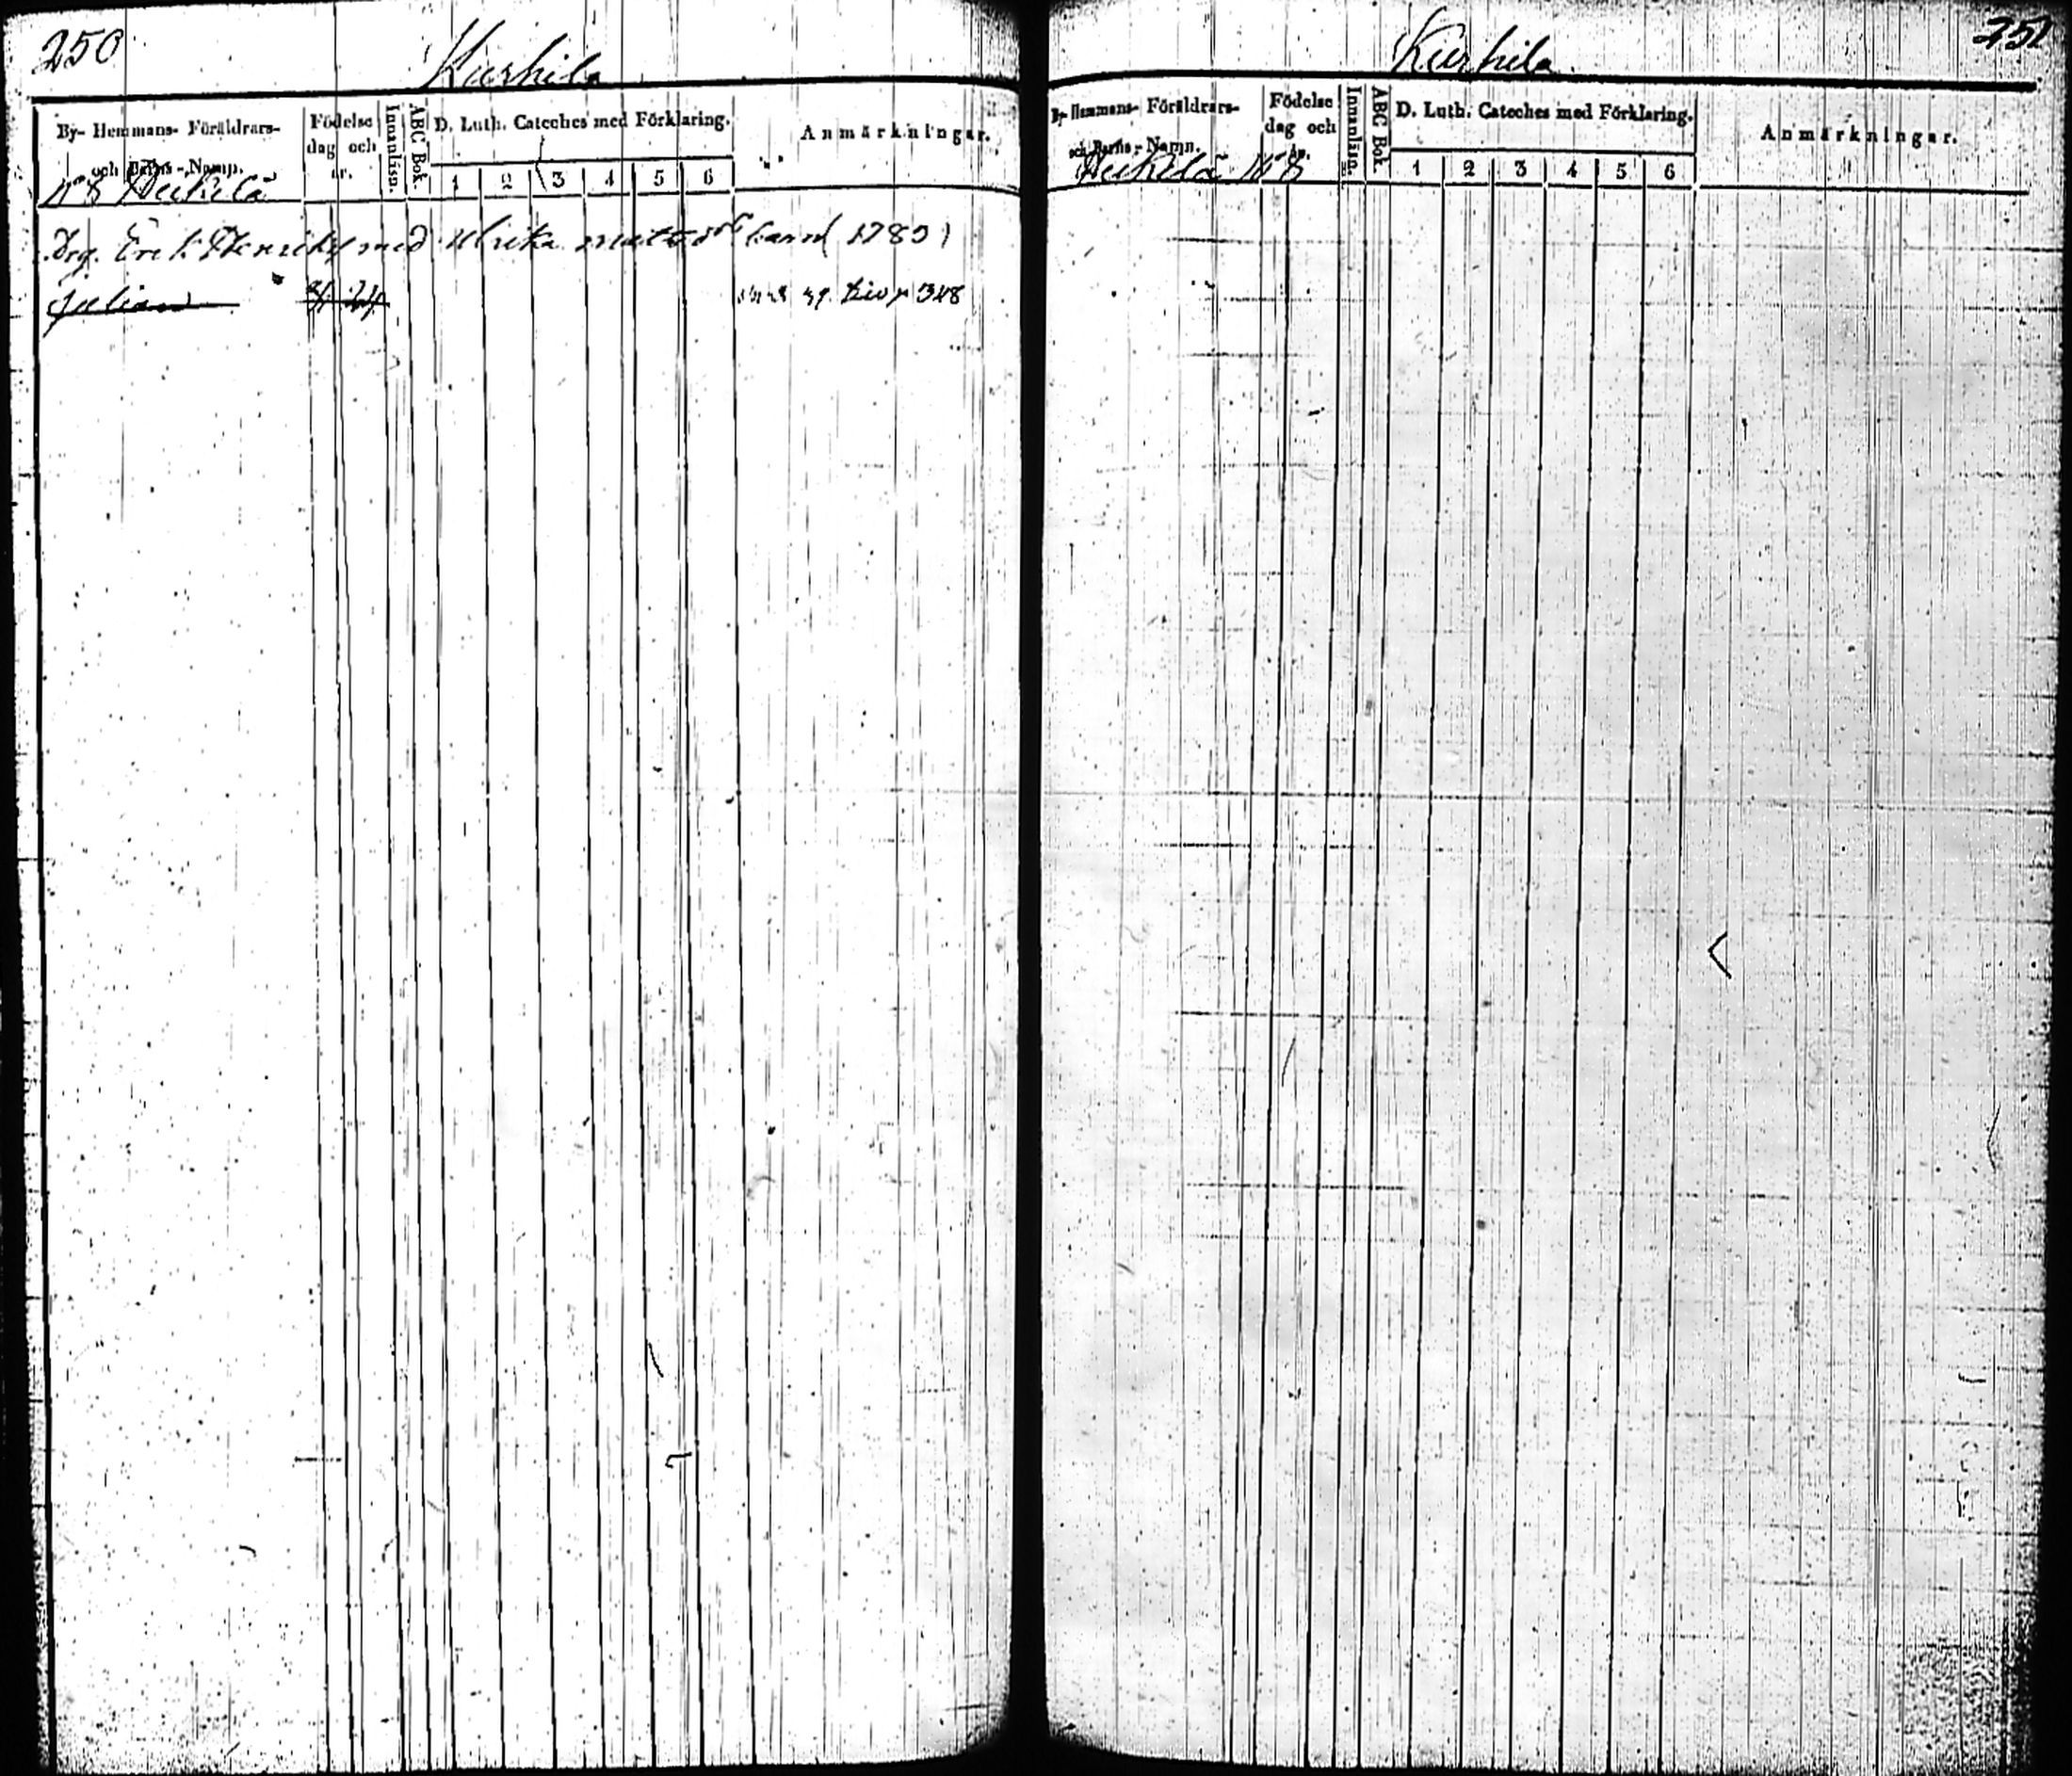 250
Kurhila
By- Hemmans- Föräldrars- och Barns-Namn.
Födelse dag och år.
Innanläsn.
ABC Bok.
D. Luth. Cateches med Förklaring.
1 2 3 4 5 6
Anmärkningar.
N:o 8 Heikilä
Drg. Erik Henriks med Ulrika barn
Julian 24
348
251
Kurhila
By- Hemmans- Föräldrars- och Barns-Namn.
Födelse dag och år.
Innanläsn.
ABC Bok.
D. Luth. Cateches med Förklaring.
1 2 3 4 5 6
Anmärkningar.
Heikilä N:o 8